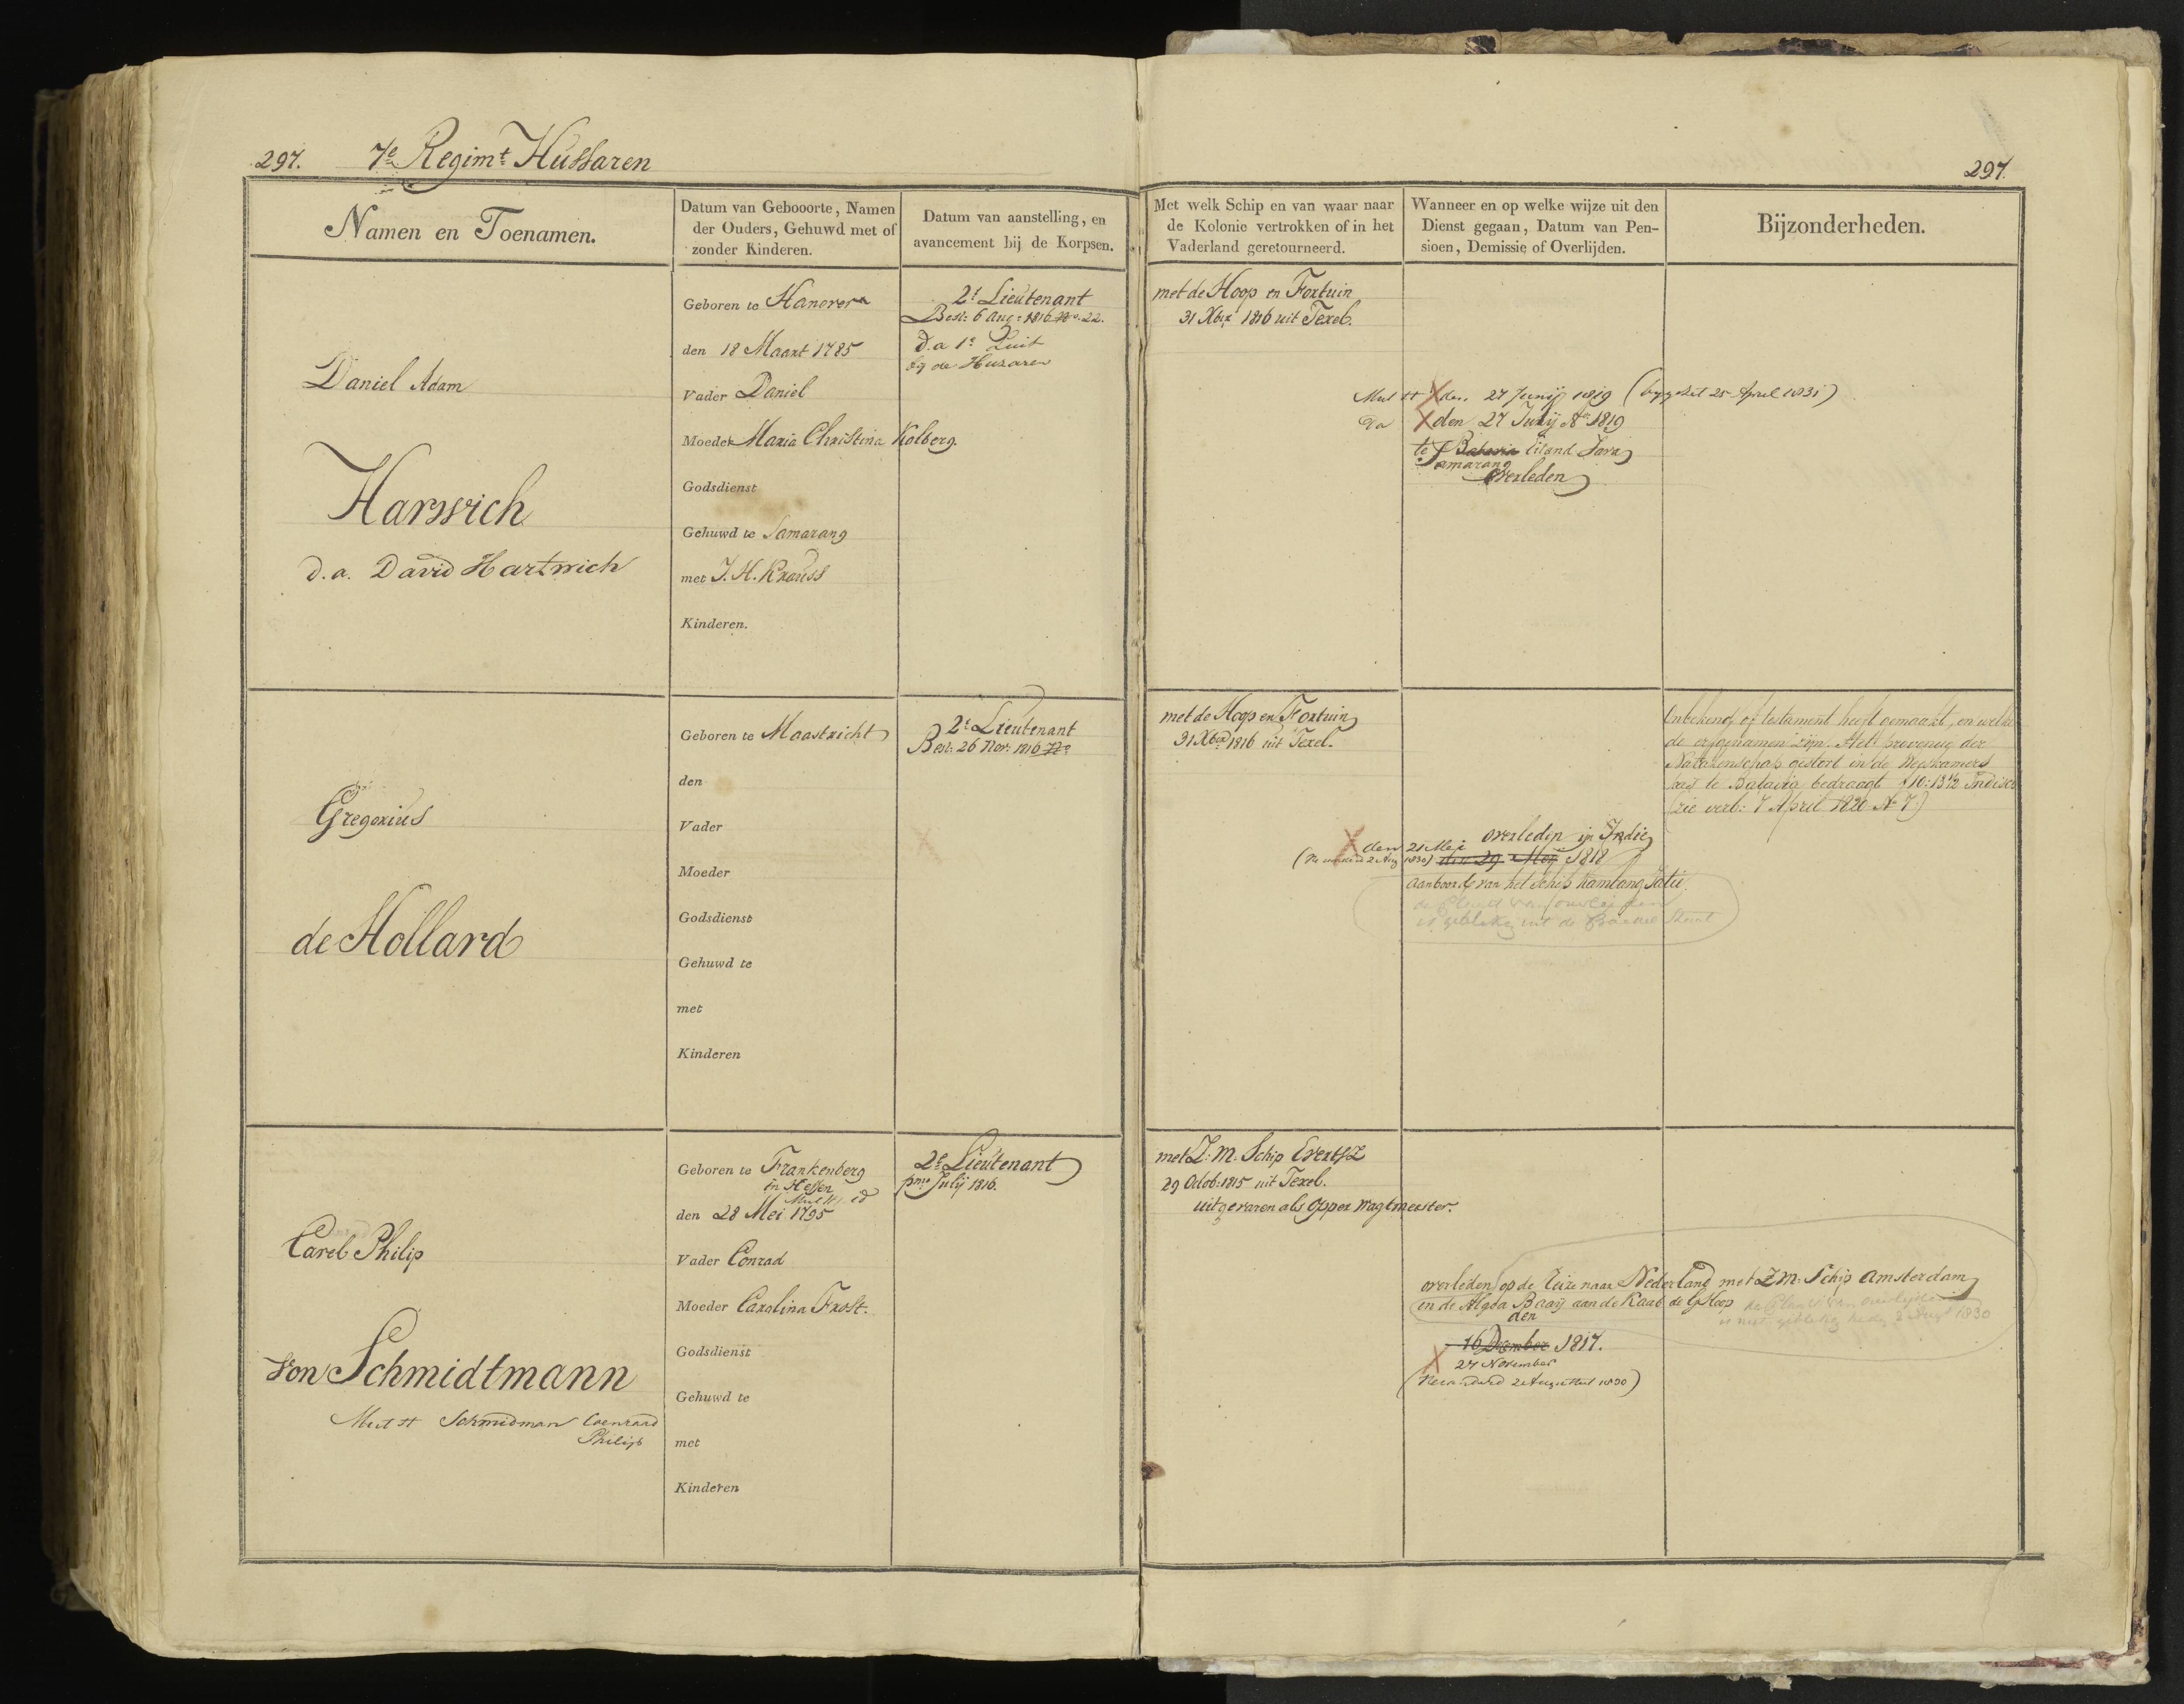 297. 7e Regimt Hussaren
297.
Namen en Toenamen.
Datum van Gebooorte, Namen
der Ouders, Gehuwd met of
zonder Kinderen.
Datum van aanstelling, en
avancement bij de Korpsen.
Met welk Schip en van waar naar
de Kolonie vertrokken of in het
Vaderland geretourneerd.
Wanneer en op welke wijze uit den
Dienst gegaan, Datum van Pen-
sioen, Demissie of Overlijden.
Bijzonderheden.
Daniel Adam
Harwich
d.a. David Hartwich
Geboren te Hanover
den 18 Maart 1785
Vader Daniel
Moeder Maria Christina Kolberg.
Godsdienst
Gehuwd te Samarang
met J. H. Krauss
Kinderen.
2e Lieutenant
Besl: 6 Aug: 1816 No. 22.
d.a 1e Luit
bij de Huzaren
met de Hoop en Fortuin
31 Xber 1816 uit Texel.
27 Junij 1819 (bijgezet 25 April 1831)
den 27 Julij 1819
te Batavia Eiland Java
Samarang
overleden
Gregorius
de Hollard
Geboren te Maastricht
den
Vader
Moeder
Godsdienst
Gehuwd te
met
Kinderen
2e Lieutenant
Besl: 26 Nov: 1816 No
met de Hoop en Fortuin
31 Xber 1816 uit Texel.
overleden in Indie
den 21 Mei
2 Aug 1830) den 29 Meij 1818
aanboord van het schip Kamlang Jatie
Onbekend of testament heeft gemaakt, en welke
de erfgenamen zijn. Het provenue der
Nalatenschap gestort in de Weeskamer
te Batavia bedraagt f 10:13 1/2 Indisch
(zie verb: 7 April 1820 No 7)
Carel Philip
von Schmidtmann
Schmidman Coenraad
Philip
Geboren te Frankenberg
in Hessen
den 28 Mei 1795
Vader Conrad
Moeder Carolina Frost.
Godsdienst
Gehuwd te
met
Kinderen
2e Lieutenant
pmo Julij 1816.
met Z: M: Schip Evertsz
29 Octob: 1815 uit Texel.
uitgevaren als opper wagtmeester.
overleden op de reize naar Nederland met Z M: Schip Amsterdam
in de Algoa Baaij aan de Kaab de G Hoop
den
16 December 1817.
27 November
(Veranderd 2 Augustus 1830)